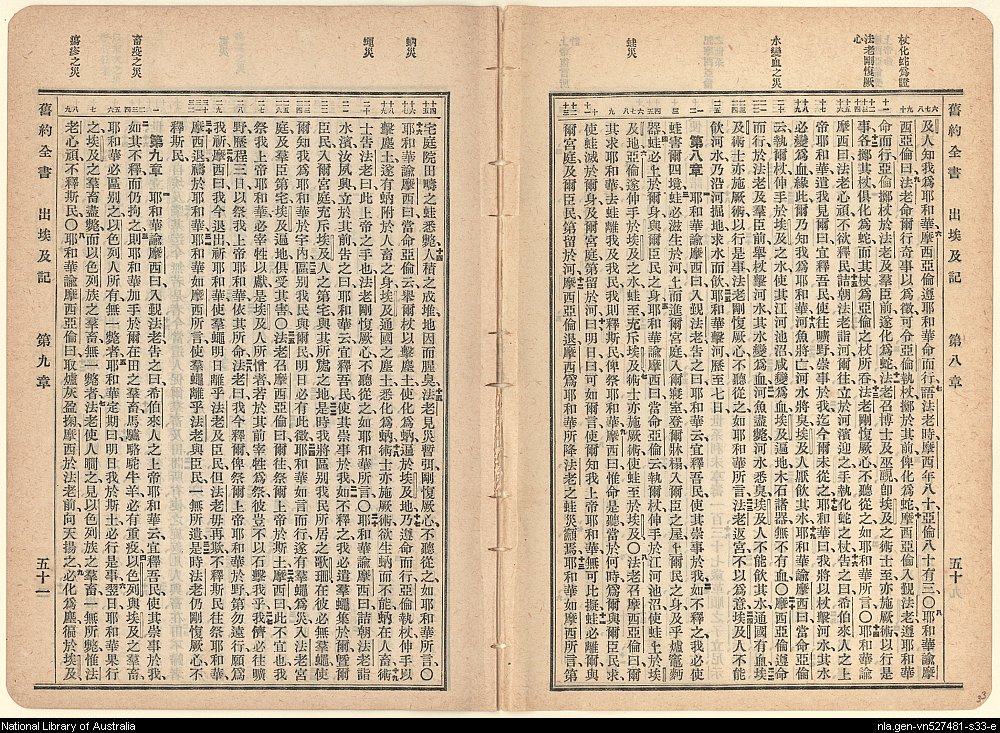 杖化蛇爲證
法老剛愎厥
心
水變血之災
蛙災
舊約全書 出埃及記 第八章 五十九
及人知我爲耶和華摩西亞倫遵耶和華命而行語法老時摩西年八十亞倫八十有三〇耶和華諭摩
西亞倫曰法老命爾行奇事以爲徵可令亞倫執杖擲於其前俾化爲蛇摩西亞倫入覲法老遵耶和華
命而行亞倫擲杖於法老及羣臣前遂化爲蛇法老召博士及巫覡卽埃及之術士至亦施厥術以行是
事各擲其杖俱化爲蛇而其杖爲亞倫之杖所吞法老剛愎厥心不聽從之如耶和華所言〇耶和華諭
摩西曰法老心頑不欲釋民詰朝法老詣河爾往立於河濱迎之手執化蛇之杖告之曰希伯來人之上
帝耶和華遣我見爾曰宜釋吾民使往曠野崇事於我迄今爾未從之耶和華曰我將以杖擊河水其水
必變爲血緣此爾乃知我爲耶和華河魚將亡河水將臭埃及人厭飲其水耶和華諭摩西曰當命亞倫
云執爾杖伸手於埃及之水使其江河池沼咸變爲血埃及遍地木石諸器無不有血〇摩西亞倫遵命
而行於法老及羣臣前舉杖擊河水其水變爲血河魚盡斃河水悉臭埃及人不能飲其水通國有血埃
及術士亦施厥術以行是事法老剛愎厥心不聽從之如耶和華所言法老返宮不以爲意埃及人不能
飲河水乃沿河掘地求水而飲耶和華擊河歷至七日
第八章 耶和華諭摩西曰入覲法老告之曰耶和華云宜釋吾民使其崇事於我如不釋之我必以
蛙害爾四境蛙必滋生於河上而進爾宮庭入爾寢室登爾牀榻入爾臣之屋上爾民之身及乎爐竈麪
器蛙必上於爾身與爾臣民之身耶和華諭摩西曰當命亞倫云執爾杖伸手於江河池沼使蛙上於埃
及地亞倫遂伸手於埃及之水蛙至充斥埃及術士亦施厥術使蛙至於埃及〇法老召摩西亞倫曰爾
其求耶和華去蛙離我及我民我則釋民使往祭耶和華摩西曰惟命是聽當於何時爲爾與爾臣民求
使蛙滅於爾身及爾宮庭第留於河曰明日曰可如爾言使爾知我上帝耶和華無可比擬蛙必離爾與
爾宮庭及爾臣民第留於河摩西亞倫退摩西爲耶和華所降法老之蛙災籲焉耶和華如摩西所言第
蚋災
蠅災
畜疫之災
瘍疹之災
宅庭院田疇之蛙悉斃人積之成堆地因而腥臭法老見災暫弭剛愎厥心不聽從之如耶和華所言〇
耶和華諭摩西曰當命亞倫云舉爾杖以擊塵土使化爲蚋遍於埃及地乃遵命而行亞倫執杖伸手以
擊塵土遂有蚋附於人畜之身埃及通國之塵土悉化爲蚋術士亦施厥術欲生蚋而不能蚋在人畜術
士告法老曰此上帝之手也法老剛愎厥心不聽從之如耶和華所言〇耶和華諭摩西曰詰朝法老詣
水濱汝夙興立於其前告之曰耶和華云宜釋吾民使其崇事於我如不釋之我必遣羣蠅集於爾暨爾
臣民入爾宮庭充斥埃及人之第宅與其所處之地是時我將區別我民所居之歌珊在彼必無羣蠅使
爾知我耶和華於宇內區別我民與爾民明日必有此徵耶和華如言而行遂有羣蠅爲災入法老宮
庭及羣臣第宅埃及遍地俱受其害〇法老召摩西亞倫曰爾往祭爾上帝於斯土摩西曰此不宜也我
祭我上帝耶和華必宰牲以獻是埃及人所憎者若於其前宰牲爲祭彼豈不以石擊我乎我儕必往曠
野歷程三日以祭我上帝耶和華依其所命法老曰我今釋爾俾祭爾上帝耶和華於野第勿遠行願爲
我祈摩西曰我今退出祈耶和華使羣蠅明日離乎法老及臣民但法老毋再欺不釋斯民往祭耶和華
摩西退禱於耶和華耶和華如摩西所言使羣蠅離乎法老與臣民一無所遺是時法老仍剛愎厥心不
釋斯民
第九章 耶和華諭摩西曰入覲法老告之曰希伯來人之上帝耶和華云宜釋吾民使其崇事於我
如其不釋而仍拘之則耶和華加手於爾在田之羣畜馬驢駱駝牛羊必有重疫以色列與埃及之羣畜
耶和華必區別之以色列人所有無一斃者耶和華定期曰明日我於斯土必行是事翌日耶和華果行
之埃及之羣畜盡斃而以色列族之羣畜無一斃者法老使人瞯之見以色列族之羣畜一無所斃惟法
老心頑不釋斯民〇耶和華諭摩西亞倫曰取爐灰盈掬摩西於法老前向天揚之必化爲塵徧於埃及
舊約全書 出埃及記 第九章 五十一
33
National Library of Australia
nla.gen-vn527481-s33-e